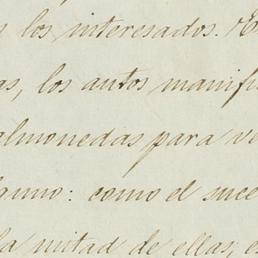 los interesados.
los autos manifi
almonedas para ve
como el suce
la mitad de ellas, es